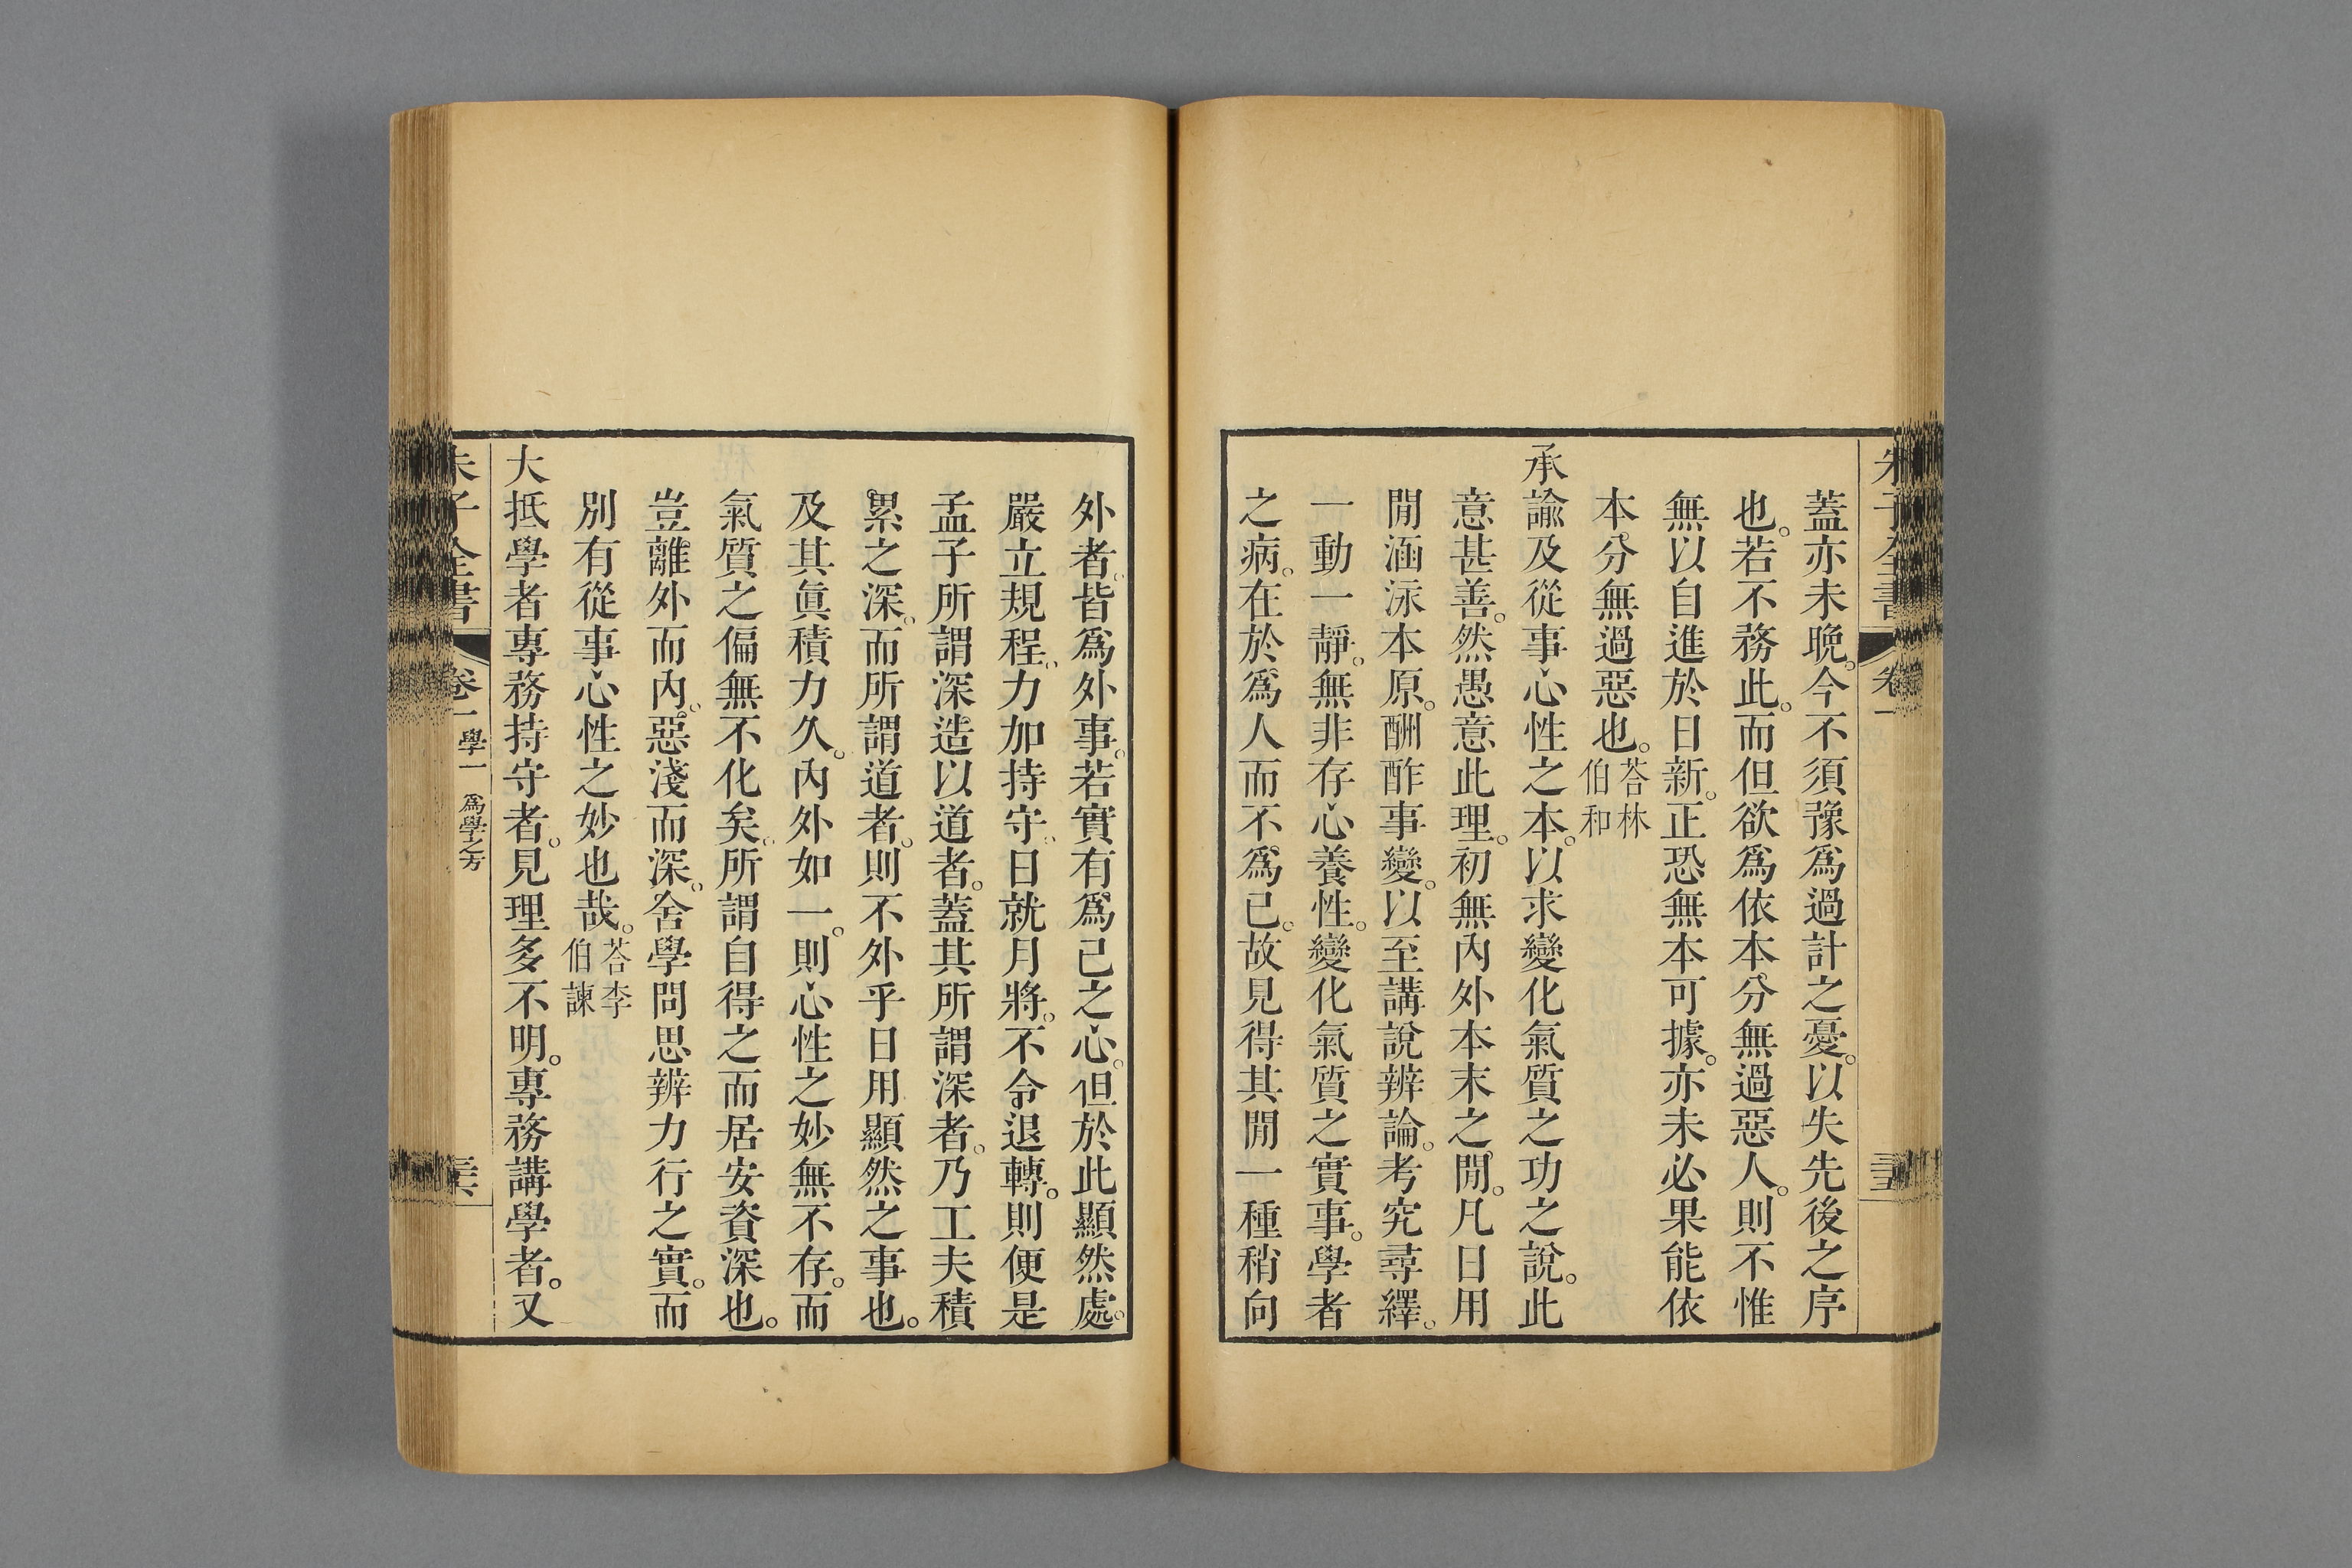 朱子全書 卷一 三五
蓋亦未晩。今不須豫爲過計之憂。以失先後之序
也。若不務此。而但欲爲依本分無過惡人。則不惟
無以自進於日新。正恐無本可據。亦未必果能依
本分無過惡也。荅林伯和
承諭及從事心性之本。以求變化氣質之功之說。此
意甚善。然愚意此理。初無內外本末之閒。凡日用
閒涵泳本原。酬酢事變。以至講說辨論。考究尋繹。
一動一靜。無非存心養性。變化氣質之實事。學者
之病。在於爲人而不爲己。故見得其閒一種稍向
外者。皆爲外事。若實有爲己之心。但於此顯然處。
嚴立規程。力加持守。日就月將。不令退轉。則便是
孟子所謂深造以道者。蓋其所謂深者。乃工夫積
累之深。而所謂道者。則不外乎日用顯然之事也。
及其眞積力久。內外如一。則心性之妙無不存。而
氣質之偏無不化矣。所謂自得之而居安資深也。
豈離外而內。惡淺而深。舍學問思辨力行之實。而
別有從事心性之妙也哉。荅李伯諫
大抵學者專務持守者。見理多不明。專務講學者。又
朱子全書 卷一 學一 爲學之方 三六